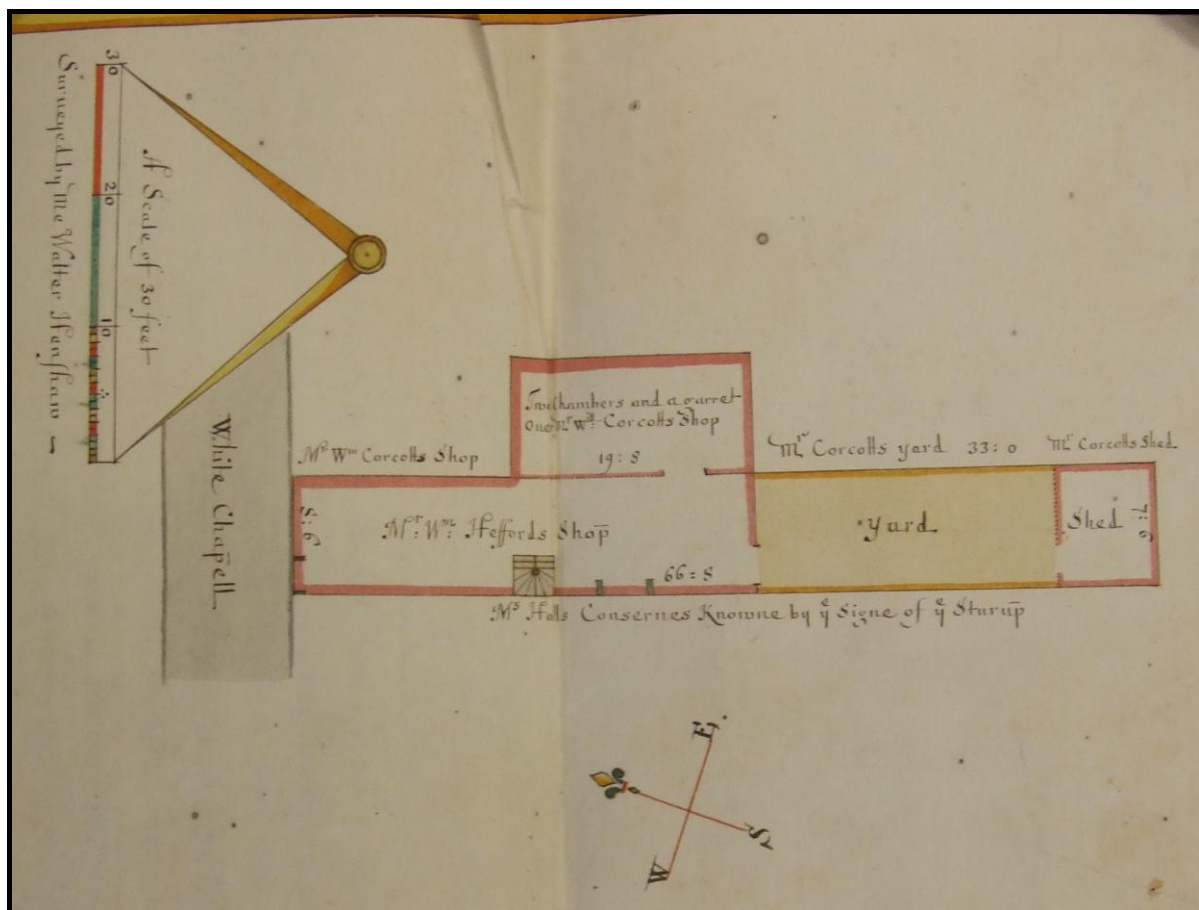 30
20
10
A Scale of 30 feet
Surveyed by Me Walter Henshaw
White Chapell
Mr Wm Corcotts Shop
Two Chambers and a garret
Over Mr Wm: Corcotts Shop
19:8
Mr Corcotts yard 33:0
Mr Corcotts Shed
8:6
Mr: Wm: Heffords Shop
yard
Shed
7:6
66:8
Ms Halls Consernes Knowne by ye Signe of ye Sturup
E
S
W